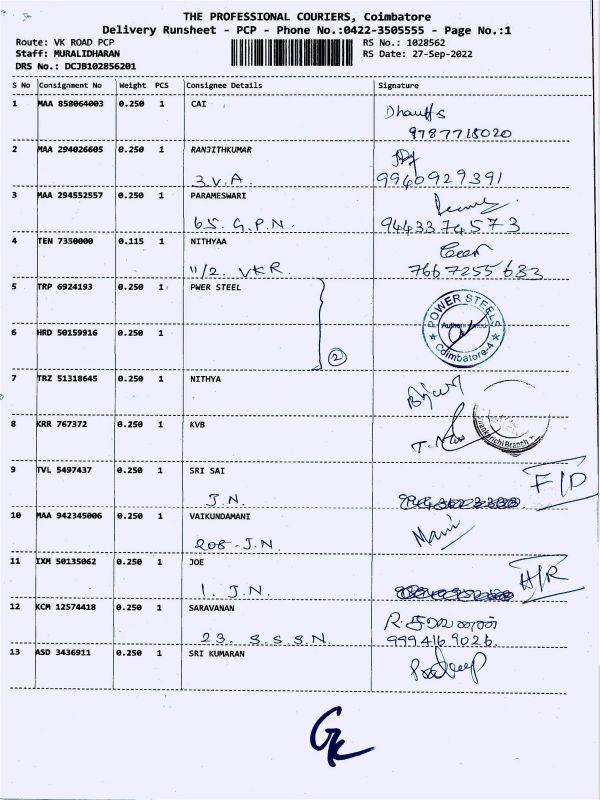 THE PROFESSIONAL COURIERS, Coimbatore
Delivery Runsheet - PCP - Phone No.:0422-3505555 - Page No.:1
Route: VK ROAD PCP RS No.: 1028562
Staff: MURALIDHARAN RS Date: 27-Sep-2022
DRS No.: DCJB102856201
S No Consignment No Weight PCS Consignee Details Signature
1 MAA 858064003 0.250 1 CAI
9787718020
2 MAA 294026605 0.250 1 RANJITHKUMAR
3.V.A. 9940929391
3 MAA 294552557 0.250 1 PARAMESWARI
65. G.P.N. 9443374573
4 TEN 7350000 0.115 1 NITHYAA
11/2. VKR. 7667255633
5 TRP 6924193 0.250 1 PWER STEEL
POWER STEELS
Coimbatore-4
6 HRD 50159916 0.250 1
2
7 TRZ 51318645 0.250 1 NITHYA
8 KRR 767372 0.250 1 KVB
Branch
9 TVL 5497437 0.250 1 SRI SAI
J.N. F/D
10 MAA 942345006 0.250 1 VAIKUNDAMANI
208. J.N. Mani
11 IXM 50135062 0.250 1 JOE
1. J.N. H/R
12 KCM 12574418 0.250 1 SARAVANAN
R. சரவணன்
23. S.S.S.N. 9994169026
13 ASD 3436911 0.250 1 SRI KUMARAN
Pradeep